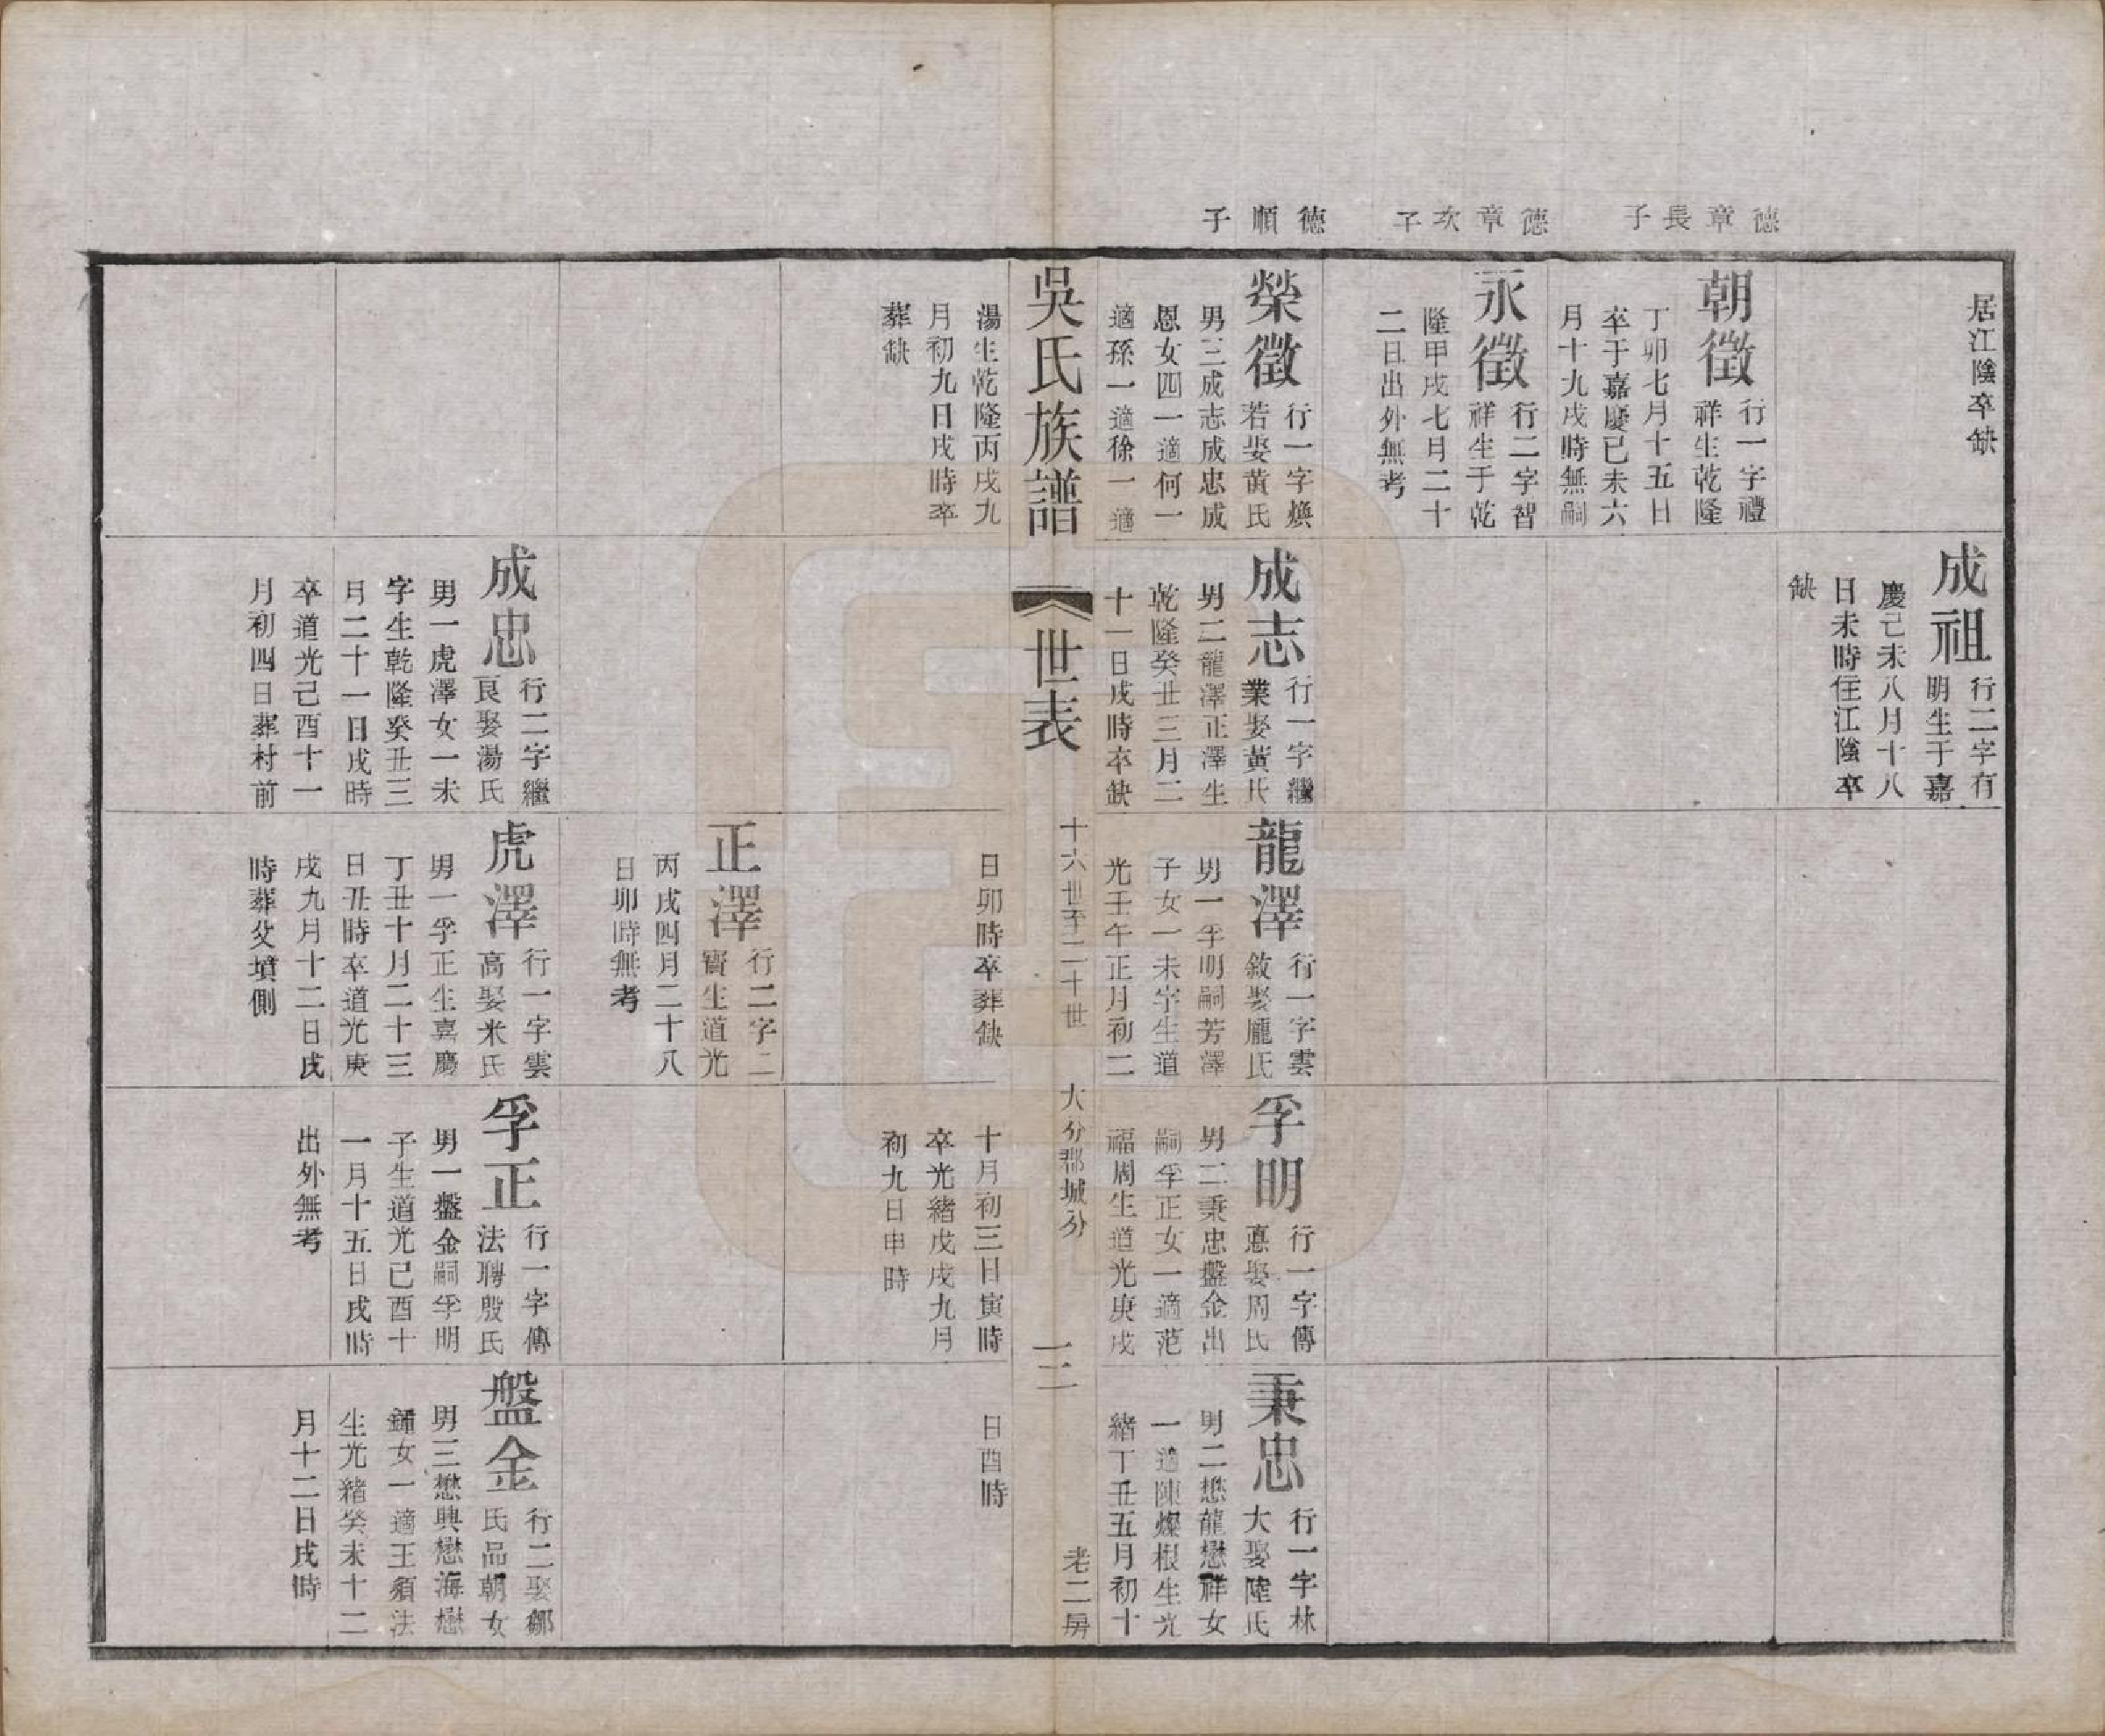 德章長子
德章次子
德順子
居江陰卒缺
朝徵
行一字禮
祥生乾隆
丁卯七月十五日
卒于嘉慶己未六
月十九戌時無嗣
永徵
行二字智
祥生于乾
隆甲戌七月二十
二日出外無考
榮徵
行一字煥
若娶黃氏
男三成志成忠成
恩女四一適何一
適孫一適徐一適
成祖
行二字有
明生于嘉
慶己未八月十八
日未時住江陰卒
缺
成志
行一字繼
業娶黃氏
男二龍澤正澤生
乾隆癸丑三月二
十一日戌時卒缺
龍澤
行一字雲
敘娶龐氏
男一孚明嗣芳澤
子女一未字生道
光壬午正月初二
孚明
行一字傳
憙娶周氏
男二秉忠盤金出
嗣孚正女一適范
福周生道光庚戌
秉忠
行一字林
大娶陸氏
男二懋龍懋祥女
一適陳燦根生光
緒丁丑五月初十
吳氏族譜
世表
十六世至二十世
大分郡城分
三
老二房
湯生乾隆丙戌九
月初九日戌時卒
葬缺
日卯時卒葬缺
十月初三日寅時
卒光緒戊戌九月
初九日申時
日酉時
正澤
行二字二
寶生道光
丙戌四月二十八
日卯時無考
成忠
行二字繼
良娶湯氏
男一虎澤女一未
字生乾隆癸丑三
月二十一日戌時
卒道光己酉十一
月初四日葬村前
虎澤
行一字雲
高娶米氏
男一孚正生嘉慶
丁丑十月二十三
日丑時卒道光庚
戌九月十二日戌
時葬父墳側
孚正
行一字傳
法聘殷氏
男一盤金嗣孚明
子生道光己酉十
一月十五日戌時
出外無考
盤金
行二娶鄒
氏品朝女
男三懋興懋海懋
鏞女一適王須法
生光緒癸未十二
月十二日戌時